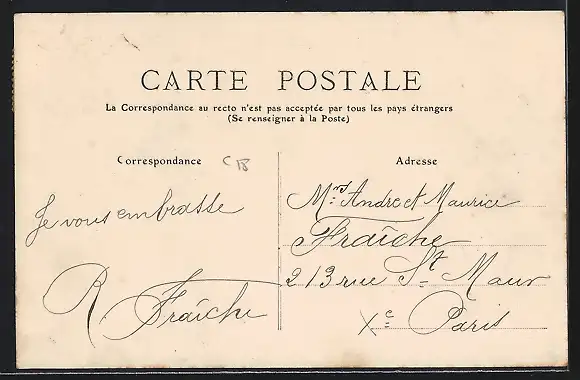 CARTE POSTALE
La Correspondance au recto n'est pas acceptée par tous les pays étrangers
(Se renseigner à la Poste)
Correspondance CB
Je vous embrasse
R Fraîche
Adresse
Mrs Andre et Maurice
Fraîche
213 rue St Maur
Xe Paris